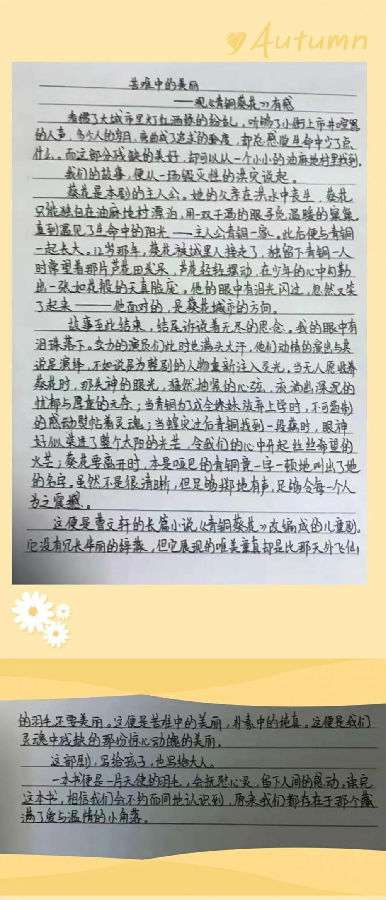 Autumn
苦难中的美丽
——观《青铜葵花》有感
看惯了大城市里灯红酒绿的纷乱，听够了小街上市井喧嚣
的人声，多少人的岁月，弯曲成了追求的弧度，却总感觉生命中少了点
什么。而这部分残缺的美好，却可以从一个小小的油麻地村里找到。
我们的故事，便从一场毁灭性的洪灾说起。
葵花是本剧的主人公。她的父亲在洪水中丧生，葵花
只能独自在油麻地村漂泊，用一双干涸的眼寻觅温暖的
直到遇见了生命中的阳光——主人公青铜一家。此后便与青铜
一起长大。12岁那年，葵花被城里人接走了，独留下青铜一人
时常望着那片芦花田发呆，芦花轻轻摆动，在少年的心中勾勒
出一张如花般的天真脸庞。他的眼中有泪光闪过，忽然又笑
了起来——他面对的，是葵花城市的方向。
故事至此结束，结尾诉说着无尽的思念。我的眼中有
泪珠落下。卖力的演员们此时也满头大汗，他们动情的演出与其
说是演绎，不如说是为舞剧的人物重新注入灵光。当无人愿收养
葵花时，那失神的眼光，猛然抽紧的心弦，永淌出深沉的
忧郁与厚重的无奈；当青铜为了成全妹妹放弃上学时，不可磨制
的感动熨帖着灵魂；当蝗灾过后青铜找到一段藕时，眼神
好似装进了整个太阳的光芒，令我们的心中开起丝丝希望的
火芒；葵花要离开时，本是哑巴的青铜竟一字一顿地叫出了她
的名字，虽然不是很清晰，但足够掷地有声，足够令每一个人
为之震撼。
这便是曹文轩的长篇小说《青铜葵花》改编成的儿童剧。
它没有冗长华丽的辞藻，但它展现的唯美童真却是比那天外飞仙
的羽毛还要美丽。这便是苦难中的美丽，朴素中的纯真。这便是我们
灵魂中残缺的那份惊心动魄的美丽。
这部剧，写给孩子，也写给大人。
一本书便是一片天使的羽毛，会抚慰心灵，留下人间的感动。读完
这本书，相信我们会不约而同地认识到，原来我们都存在于那个藏
满了爱与温情的小角落。